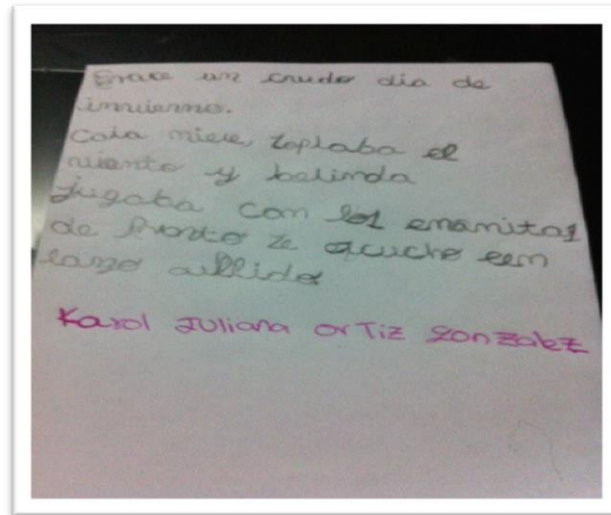 Erace un crudo dia de
invierno.
Caia nieve, zoplaba el
viento y belinda
jugaba con los enanitos
de pronto ze ecucho un
largo aullido
Karol Juliana orTiz gonzalez